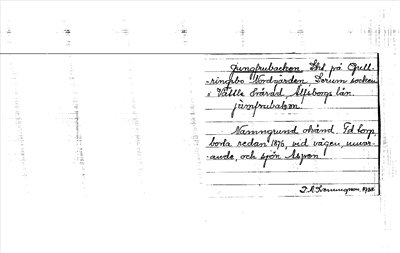 Jungfrubacken Lht. på Gräll-
ringsbo Nordgården, Lerum socken
i Vättle härad, Älfsborgs län.
jùmfrubakən.
Namngrund okänd. Fd torp
borta redan 1876, vid vägen, nuvar-
ande, och sjön Aspen
1922.